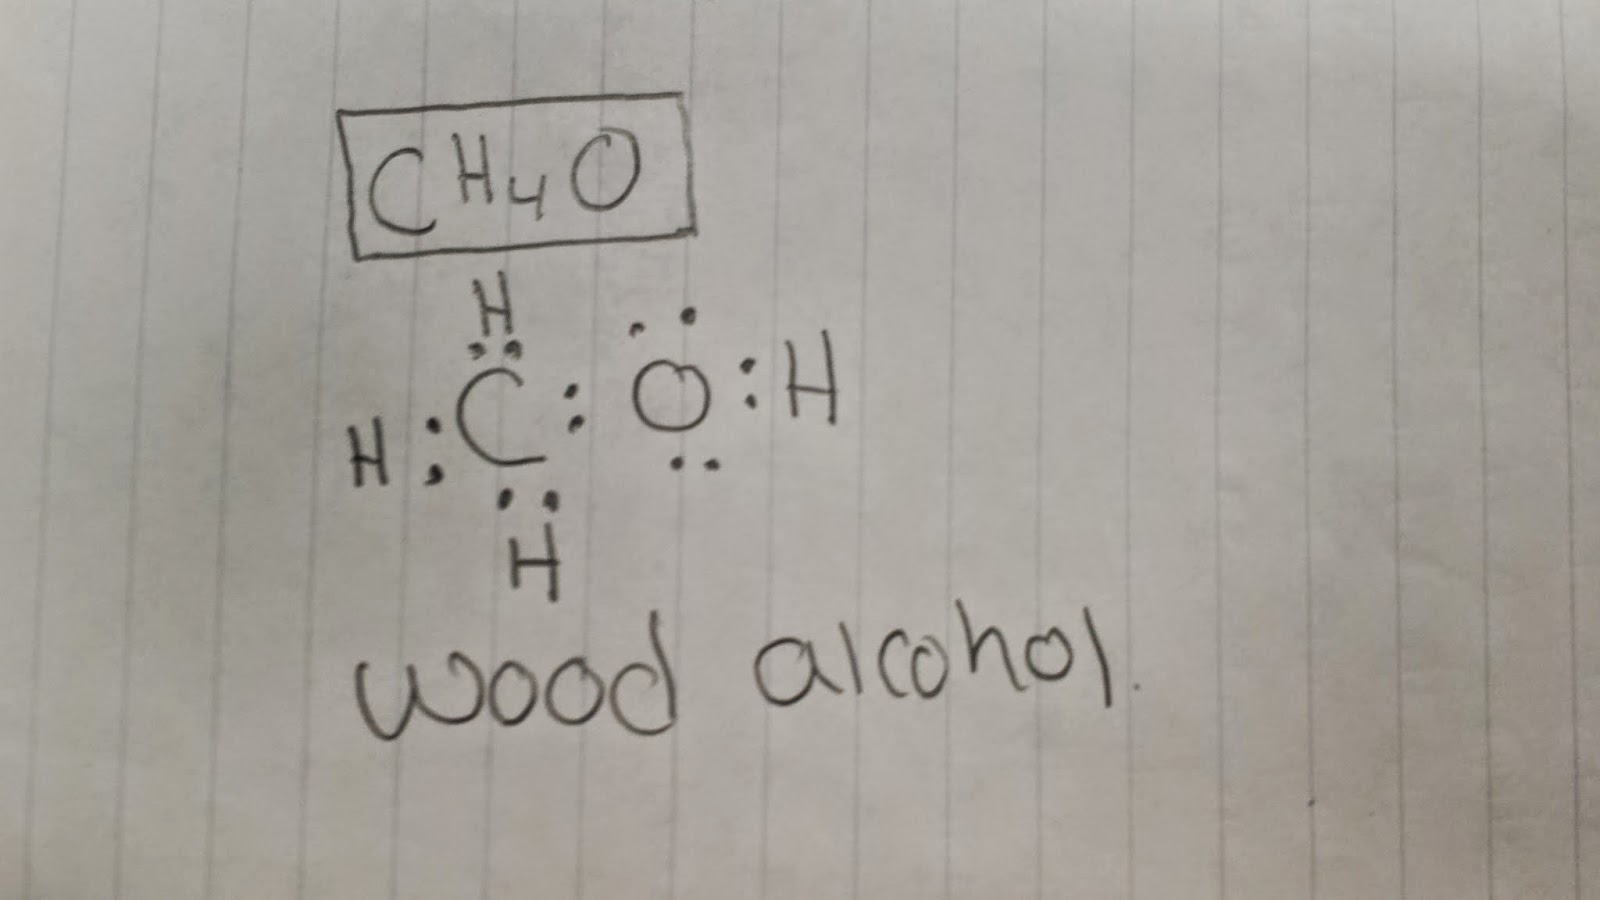 CH₄O
H
H : C : O : H
H
wood alcohol.